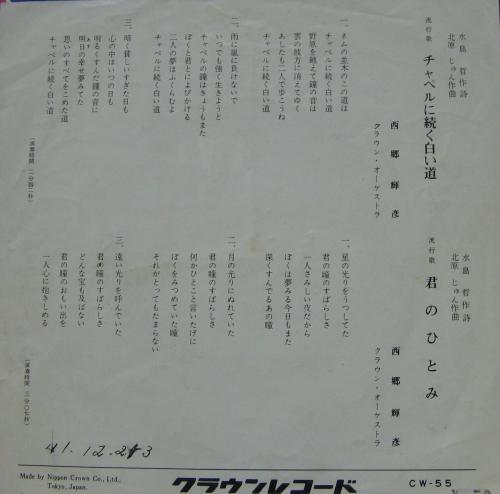 水島　哲作詩
北原じゅん作曲
流行歌　チャペルに続く白い道
西郷輝彦
クラウン・オーケストラ
一、ネムの並木のこの道は
チャペルに続く白い道
野原を越えて鐘の音は
雲の彼方に消えてゆく
あしたも二人で歩こうね
チャペルに続く白い道
二、雨に風に負けないで
いつでも強く生きようと
チャペルの鐘はきょうもまた
ぼくと君とによびかける
二人の夢はふくらむよ
チャペルに続く白い道
三、暗く貧しいすぎた日も
心の中はいつの日も
明るくすんだ鐘の音に
明日の幸せ夢みてた
思いのすべてをこめた道
チャペルに続く白い道
（演奏時間　二分四二秒）
水島　哲作詩
北原じゅん作曲
流行歌　君のひとみ
西郷輝彦
クラウン・オーケストラ
一、星の光りをうつしてた
君の瞳のすばらしさ
一人さみしい夜だから
ぼくは夢みる今日もまた
深くすんでるあの瞳
二、月の光りにぬれていた
君の瞳のすばらしさ
何かひとこと言いたげに
ぼくをみつめていた瞳
それがとってもたまらない
三、遠い光りを呼んでいた
君の瞳のすばらしさ
どんな宝も及ばない
君の瞳のおもい出を
一人心に抱きしめる
（演奏時間　三分〇七秒）
41.12.23
Made by Nippon Crown Co., Ltd.,
Tokyo, Japan.
クラウンレコード
CW-55